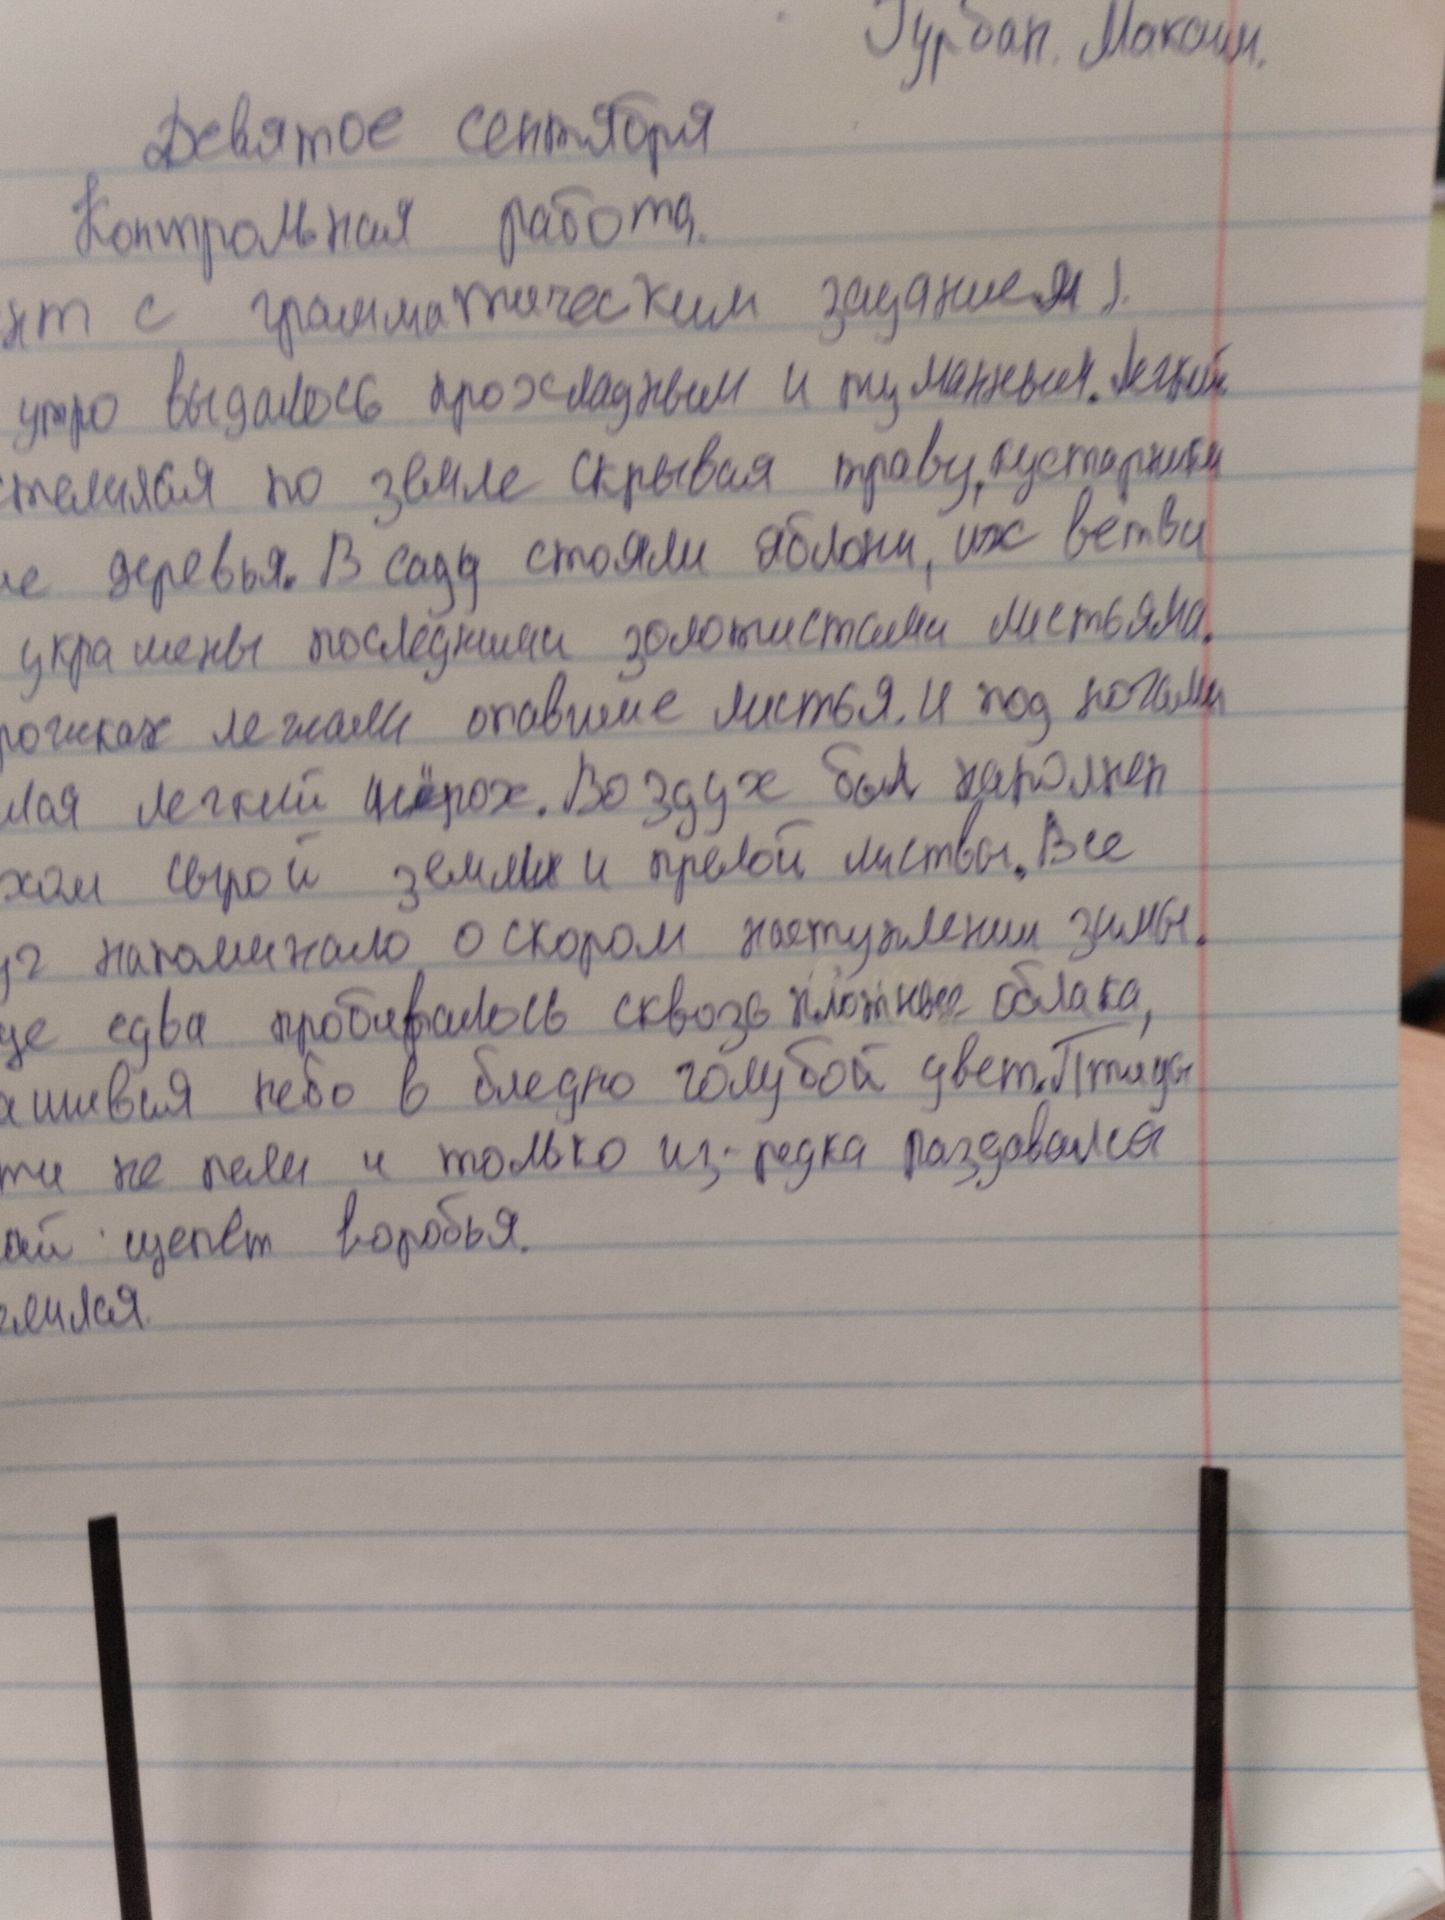 Гурбан. Максим.
Девятое сентября
Контрольная работа.
нт с грамматическим заданием).
утро выдалось прохладным и туманным. Легкий
стелился по земле скрывая траву, кустарники
ие деревья. В саду стояли яблони, их ветви
украшены последними золотистами листьями.
рожках лежали опавшие листья. И под ногами
лся легкий шёрох. Воздух был наполнен
хом сырой земли и прелой листвы. Все
уг напоминало о скором наступлении зимы.
це едва пробивалось сквозь плотные облака,
ашивая небо в бледно голубой цвет. Птицы
ти не пели и только из-редка раздавался
ий щепет воробья.
елился.